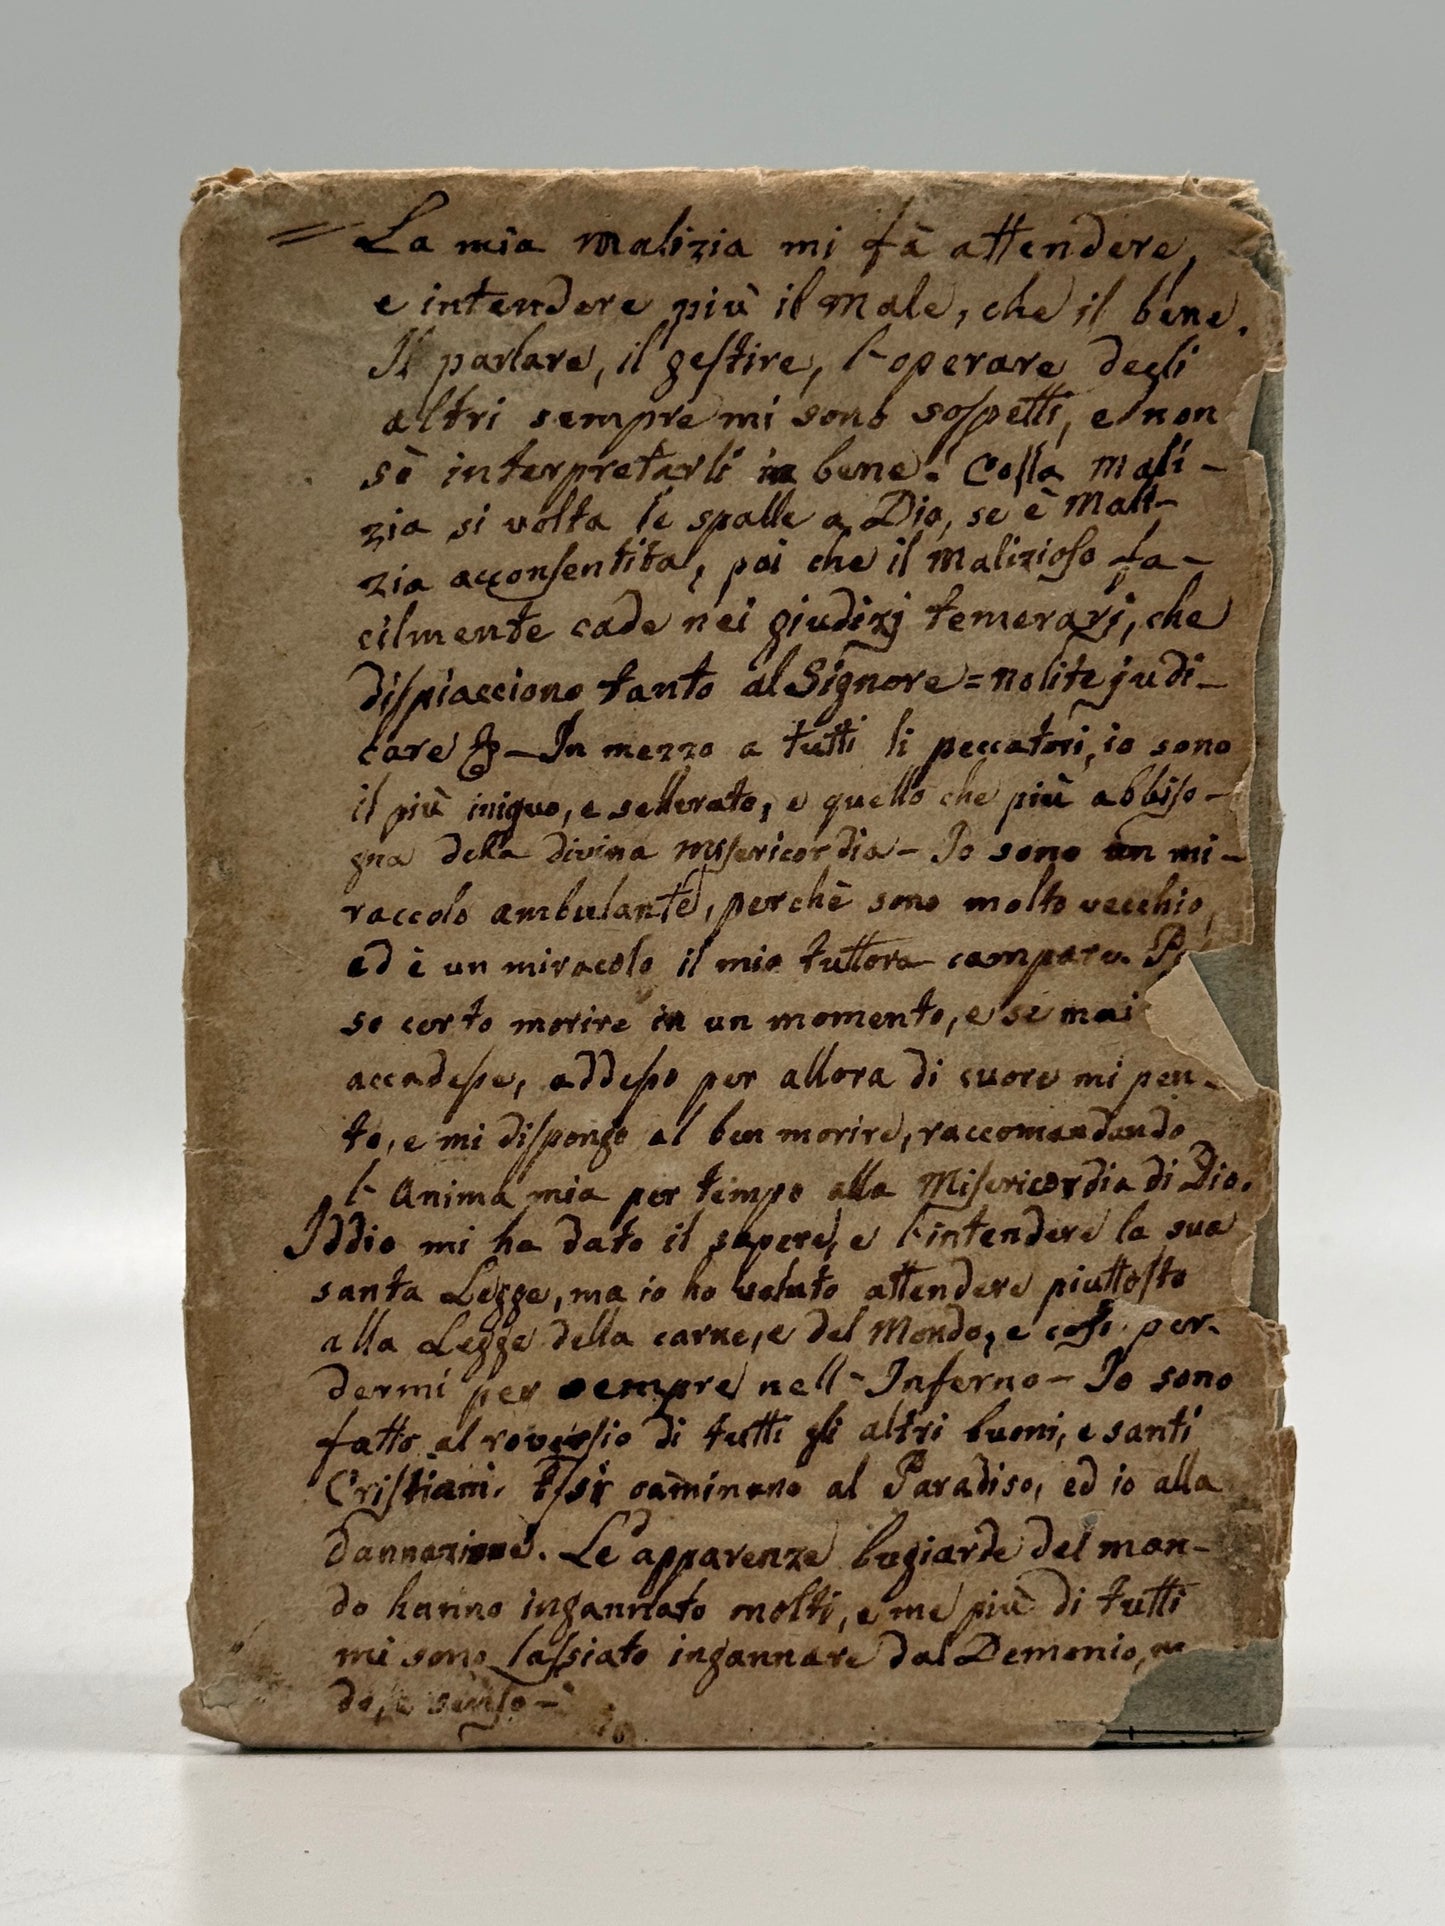 = La mia malizia mi fà attendere,
e intendere più il Male, che il bene.
Il parlare, il gestire, l'operare degli
altri sempre mi sono sospetti, e non
sò interpretarli in bene. Colla mali-
zia si volta le spalle a Dio, se è Mali-
zia acconsentita, poi che il Malizioso fa-
cilmente cade nei giudizj temerarj, che
dispiacciono tanto al Signore = nolite judi-
care &— In mezzo a tutti li peccatori, io sono
il più iniquo, e sellerato, e quello che più abbiso-
gna della divina Misericordia — Io sono un mi-
raccolo ambulante, perchè sono molto vecchio,
ed è un miracolo il mio tuttora campare.
so certo morire in un momento, e se mai
accadesse, addesso per allora di cuore mi pen-
to, e mi dispongo al ben morire, raccomandando
l'Anima mia per tempo alla Misericordia di Dio.
Iddio mi ha dato il sapere, e l'intendere la sua
santa Legge, ma io ho voluto attendere piuttosto
alla Legge della carne, e del Mondo, e così per-
dermi per sempre nell'Inferno — Io sono
fatto al roversio di tutti gli altri buoni, e santi
Cristiani. Essi caminano al Paradiso, ed io alla
dannazione. Le apparenze bugiarde del mon-
do hanno ingannato molti, e me più di tutti
mi sono lassiato ingannare dal Demonio,
senso —